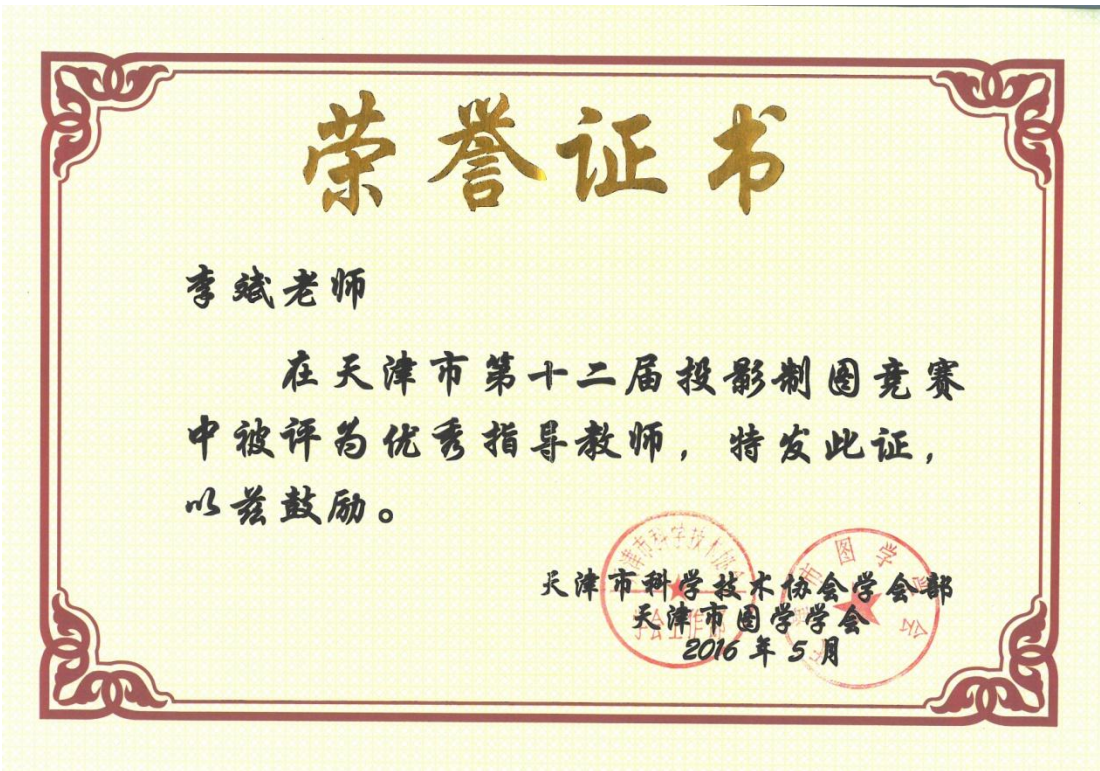 荣誉证书
李斌老师
在天津市第十二届投影制图竞赛
中被评为优秀指导教师，特发此证，
以兹鼓励。
天津市科学技术协会学会部
天津市图学学会
2016年5月
学会工作部